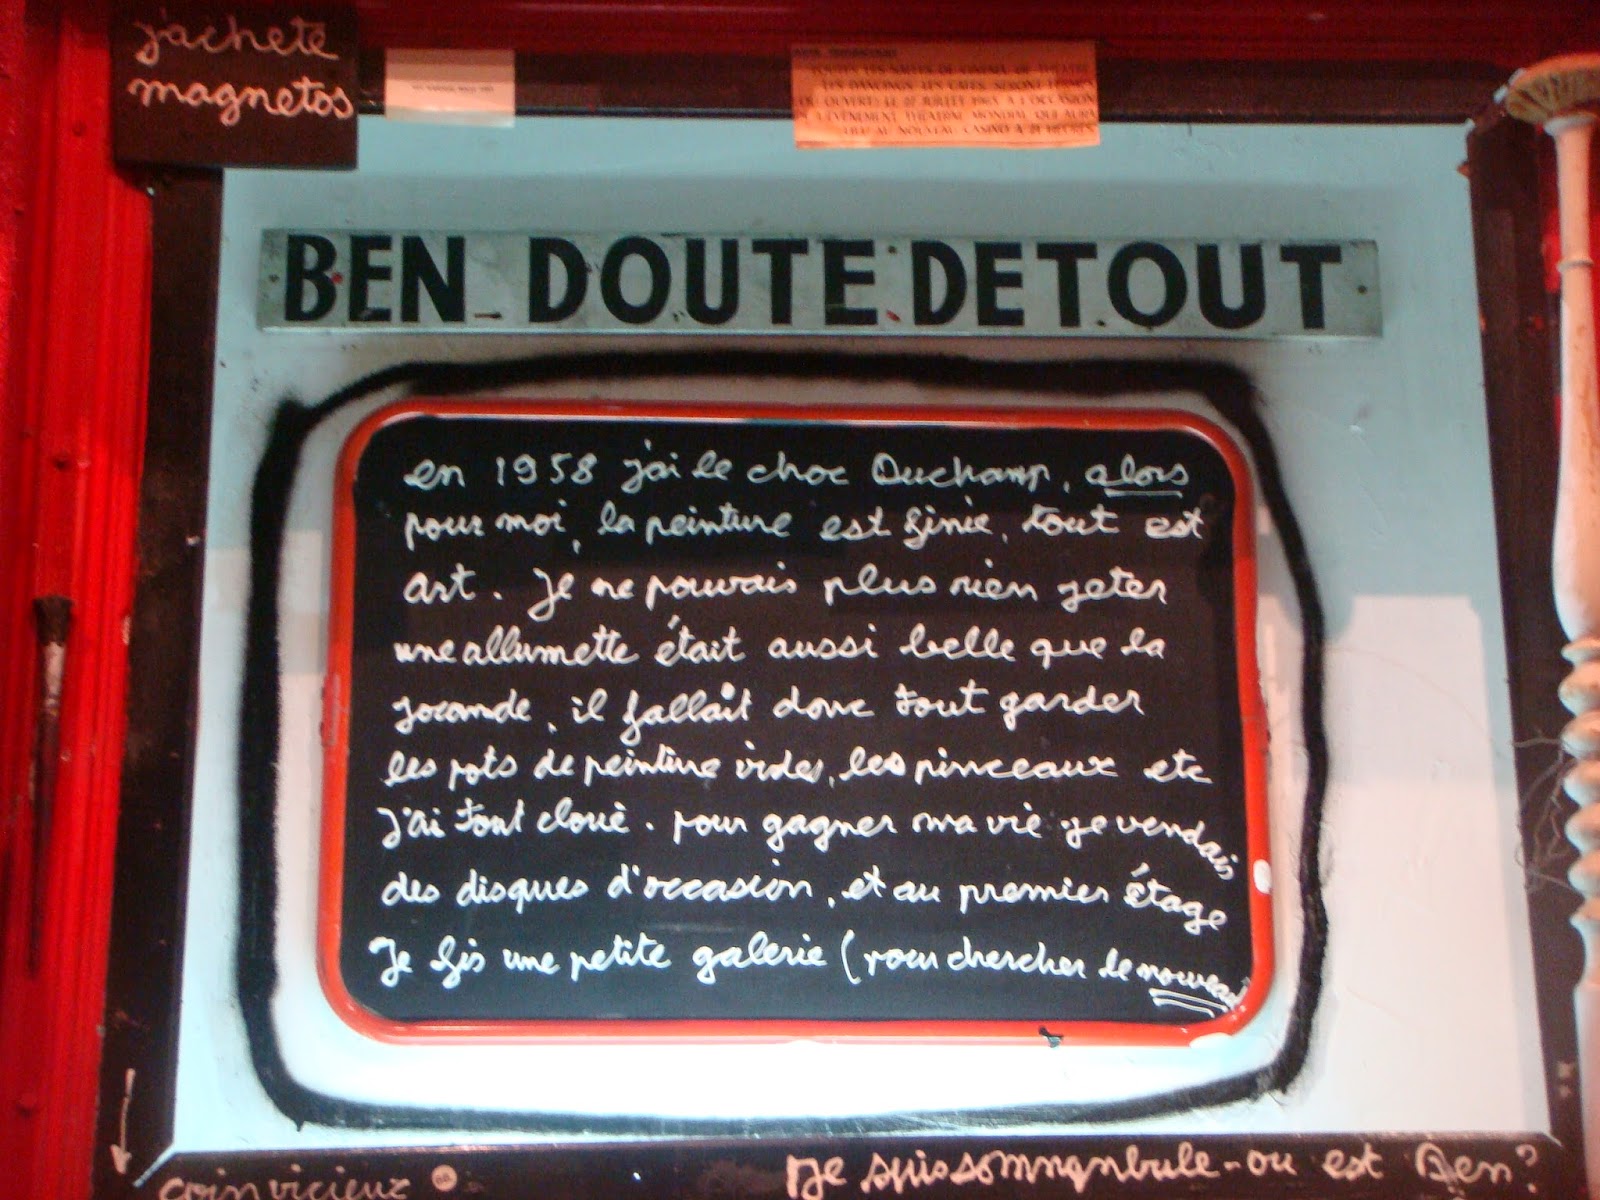 j'achete
magnetos
TOUTES LES SALLES DE CINEMA, DE THEATRE
LES DANCINGS LES CAFES, SERONT
OUVERT) LE 27 JUILLET 1963, A L'OCCASION
L'EVENEMENT THEATRAL MONDIAL QUI AURA
LIEU AU NOUVEAU CASINO A 21 HEURES
BEN DOUTE DE TOUT
en 1958 j'ai le choc Duchamp, alors
pour moi, la peinture est finie, tout est
art. Je ne pouvais plus rien jeter
une allumette était aussi belle que la
joconde, il fallait donc tout garder
les pots de peinture vides, les pinceaux etc
J'ai tout cloué. pour gagner ma vie je vendais
des disques d'occasion, et au premier étage
Je fis une petite galerie (pour chercher le nouveau)
coin vicieux
Je suis somnanbule - ou est Ben?